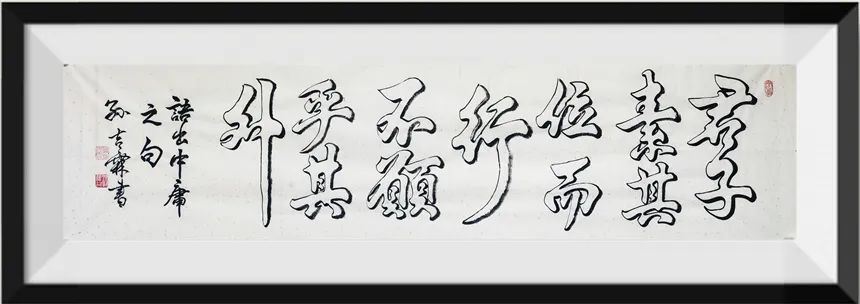 君子
素其
位而
行
不願
乎其
外
語出中庸
之句
孫吉霖書